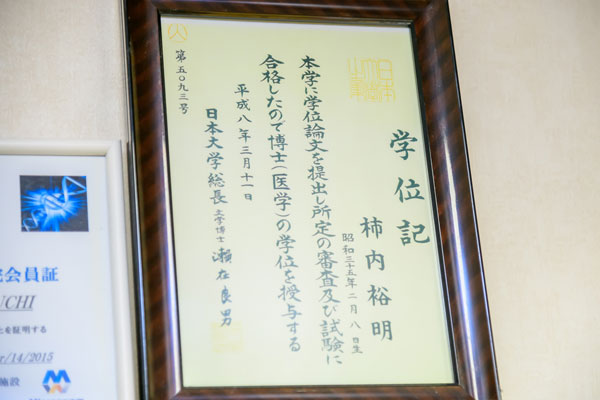 学位記
柿内裕明
昭和三十五年二月八日生
本学に学位論文を提出し所定の審査及び試験に
合格したので博士(医学)の学位を授与する
平成八年三月十一日
日本大学総長 文学博士 瀬在良男
第五〇九三号
会員証
UCHI
を証明する
/14/2015
施設